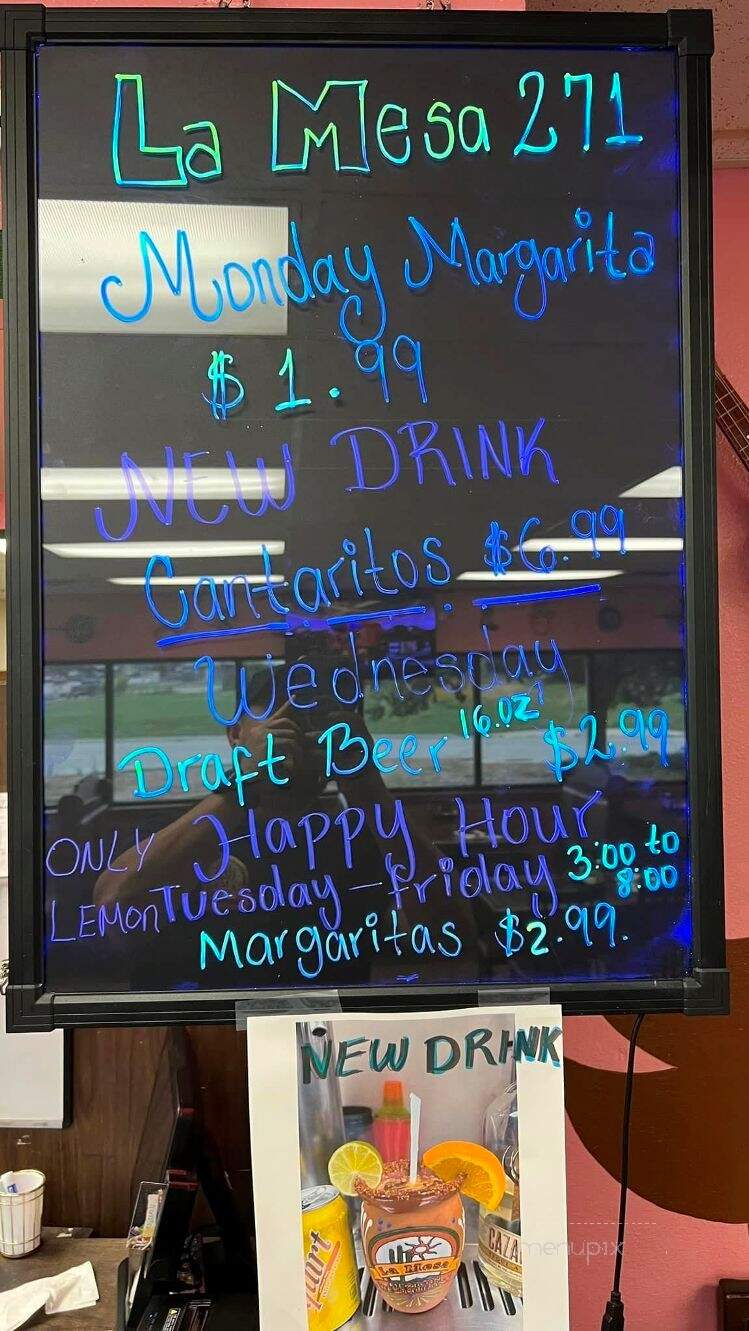 La Mesa 271
Monday Margarita
$ 1.99
NEW DRINK
Cantaritos $6.99
Wednesday
Draft Beer 16.OZ $2.99
ONLY Happy Hour
LEMON Tuesday - friday 3:00 to 8:00
Margaritas $2.99.
NEW DRINK
La Mesa
CAZA
menupix